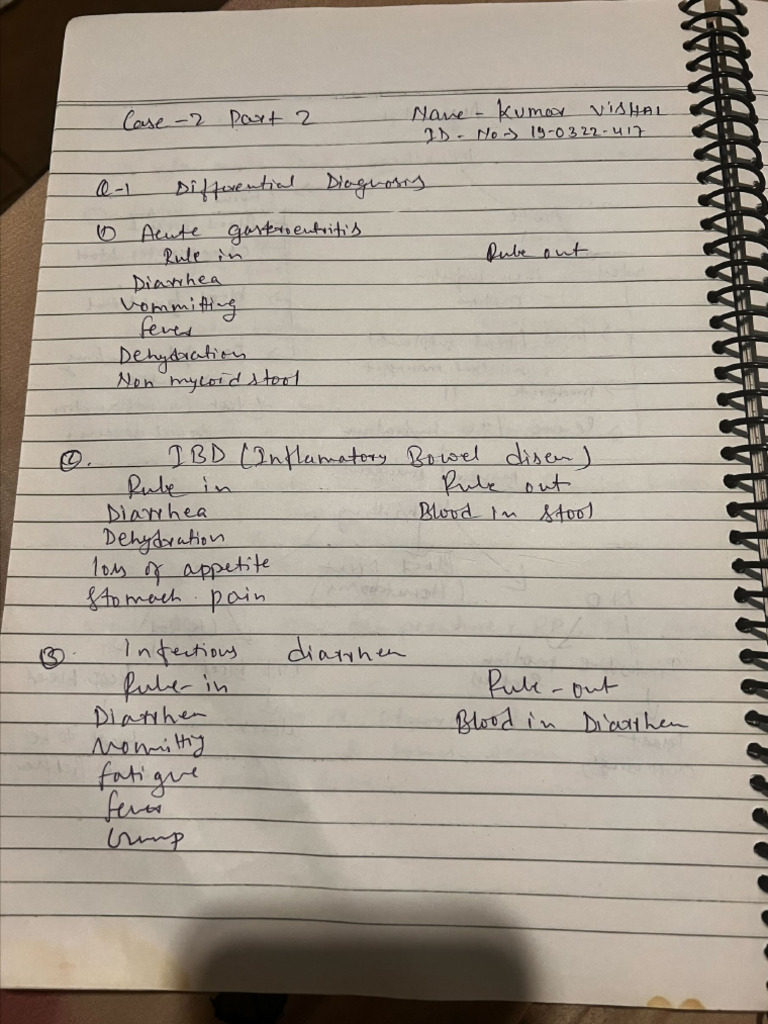 Case -2 Part 2 Name - Kumar VISHAL
ID - No → 19-0322-417
Q-1 Differential Diagnosis
① Acute gastroentritis
Rule in Rule out
Diarrhea
Vommitting
fever
Dehydration
Non mycoid stool
②. IBD (Inflamatory Bowel disease)
Rule in Rule out
Diarrhea Blood in stool
Dehydration
loss of appetite
Stomach pain
③. Infectious diarrhea
Rule-in Rule-out
Diarrhea Blood in Diarrhea
Vomitting
fatigue
fever
Crump